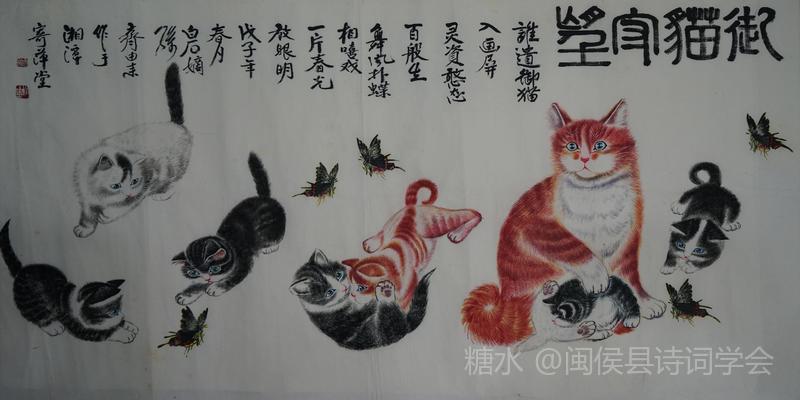 御貓守望
誰遣御猫
入画屏
灵姿憨态
百般生
舞风扑蝶
相嘻戏
一片春光
放眼明
戊子年
春月
白石嫡
孫
齊由来
作于
湘潭
寄萍堂
糖水 @闽侯县诗词学会